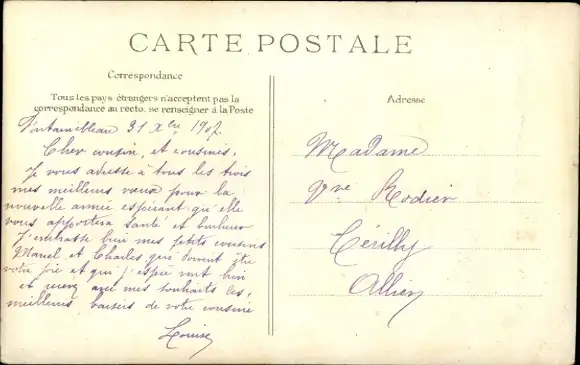 CARTE POSTALE
Correspondance
Tous les pays étrangers n'acceptent pas la
correspondance au recto. se renseigner à la Poste
Fontainebleau 31 Xbre 1907.
Cher cousin, et cousines,
Je vous adresse à tous les trois
mes meilleurs vœux pour la
nouvelle année espérant qu'elle
vous apportera santé et bonheur
J'embrasse bien mes petits cousins
Marcel et Charles qui doivent être
votre joie et qui j'espère vont bien
et avec mes souhaits les
meilleurs baisers de votre cousine
Louise
Adresse
Madame
Vve Rodier
Cérilly
Allier